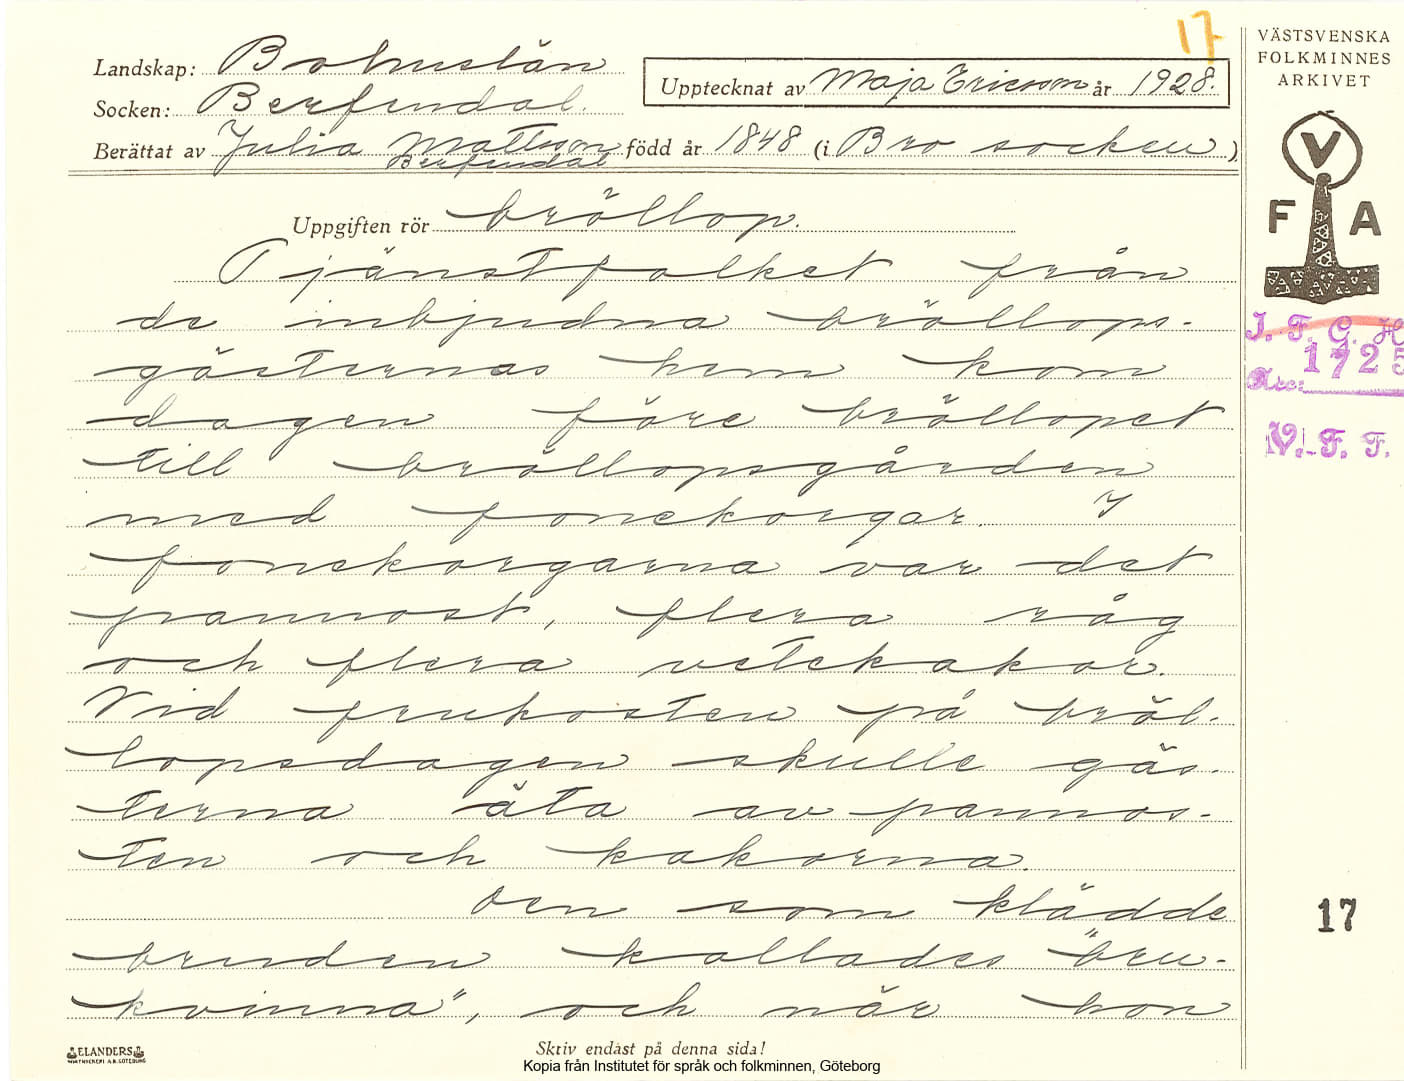 17
VÄSTSVENSKA
FOLKMINNES
ARKIVET
Landskap: Bohuslän
Socken: Berfendal.
Upptecknat av Maja Ericson år 1928.
Berättat av Julia Mattsson född år 1848 (i Bro socken)
Berfendal
V
F A
I. F. G. H
1725
Acc:
V. F. F.
Uppgiften rör bröllop.
Tjänstfolket från
de inbjudna bröllops-
gästernas hem kom
dagen före bröllopet
till bröllopsgården
med fonekorgar. I
fonekorgarna var det
pannost, flera råg
och flera vetekakor.
Vid frukosten på bröl-
lopsdagen skulle gäs-
terna äta av pannos-
ten och kakorna.
Den som klädde
bruden kallades "bru-
kvinna", och när hon
17
ELANDERS
Skriv endast på denna sida!
Kopia från Institutet för språk och folkminnen, Göteborg